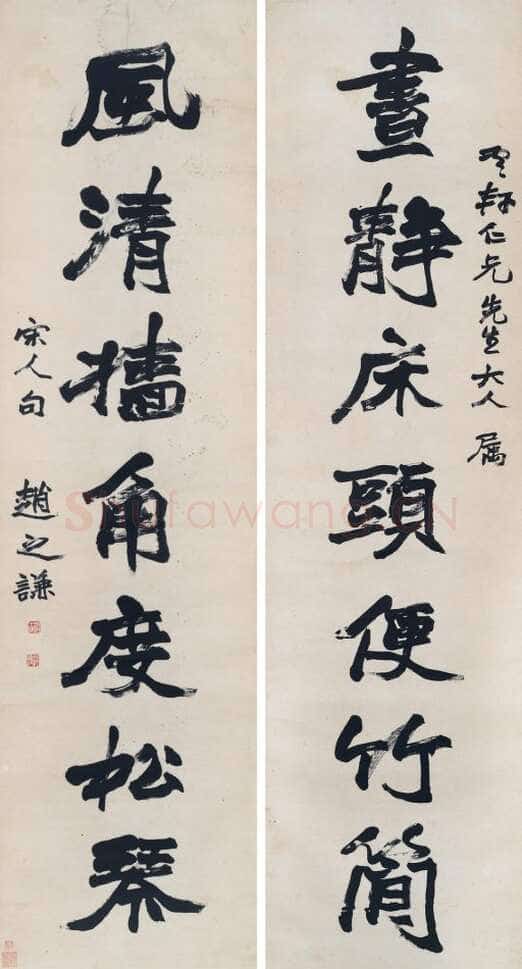 軒仁兄先生大人属
晝靜床頭便竹簡
風清牆角度松琴
宋人句 趙之謙
Shufawang.CN